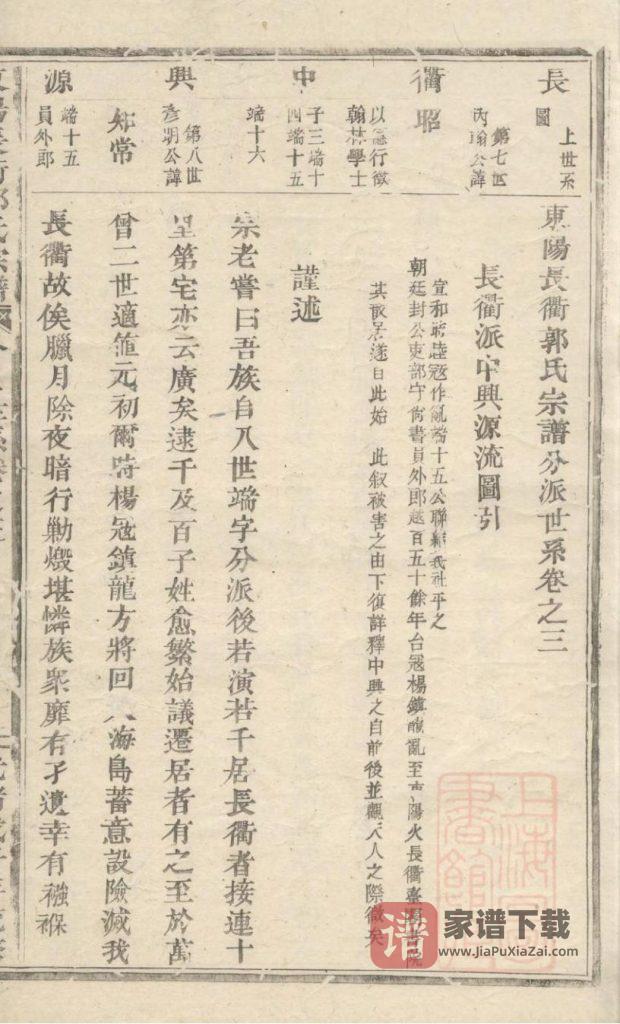 東陽長衢郭氏宗譜分派世系卷之三
長衢派中興源流圖引
宣和時睦冦作亂端十五公聯結義社平之
朝廷封公吏部守尚書員外郎越百五十餘年台冦楊鎮龍亂至東陽火長衢臺園書院
其散居遂自此始 此叙被害之由下復詳釋中興之自前後並觀天人之際微矣
謹述
宗老嘗曰吾族自八世端字分派後若演若千居長衢者接連十
里第宅亦云廣矣逮千及百子姓愈繁始議遷居者有之至於萬
曾二世適值元初爾時楊冦鎮龍方將回入海島蓄意設險滅我
長衢故俟臘月除夜暗行勦燬堪憐族衆靡有孑遺幸有襁褓
長衢中興源
上世系
圖
第七世
內翰公諱
昭
以應行徵
翰林學士
子三端十
四端十五
端十六
第八世
彥明公諱
知常
端十五
員外郎
上海圖書館藏
谱
家谱下载
www.JiaPuXiaZai.com